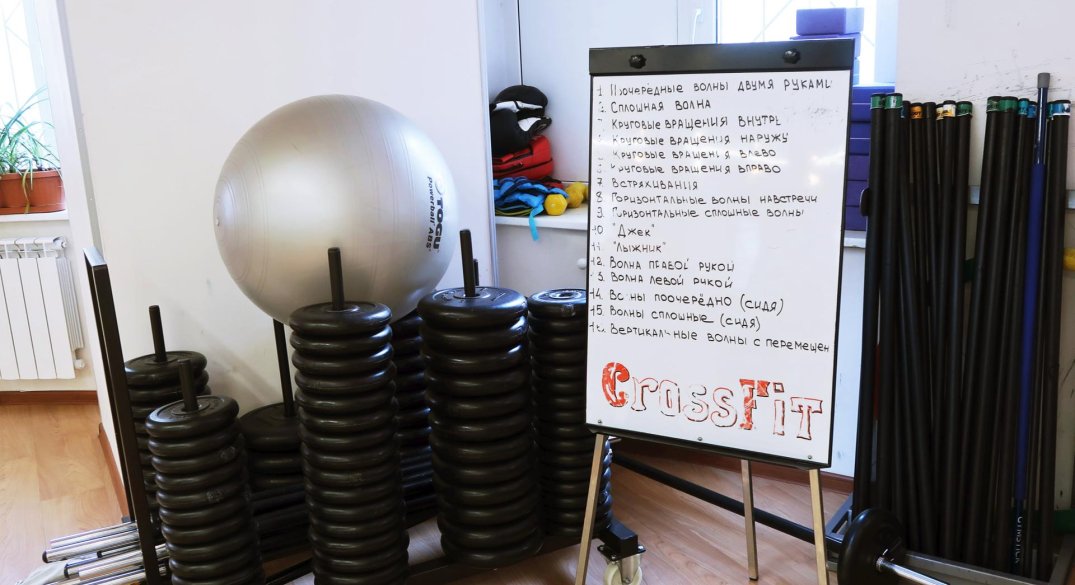 TOGU
powerball ABS
1 Поочерёдные волны двумя руками
2. Сплошная волна
Круговые вращения внутрь
Круговые вращения наружу
Круговые вращения влево
Круговые вращения вправо
7. Встряхивания
8. Горизонтальные волны навстречу
9. Горизонтальные сплошные волны
10 "Джек"
11. "Лыжник"
12. Волна правой рукой
13. Волна левой рукой
14. Волны поочерёдно (сидя)
15. Волны сплошные (сидя)
16. Вертикальные волны с перемещен
CrossFiT